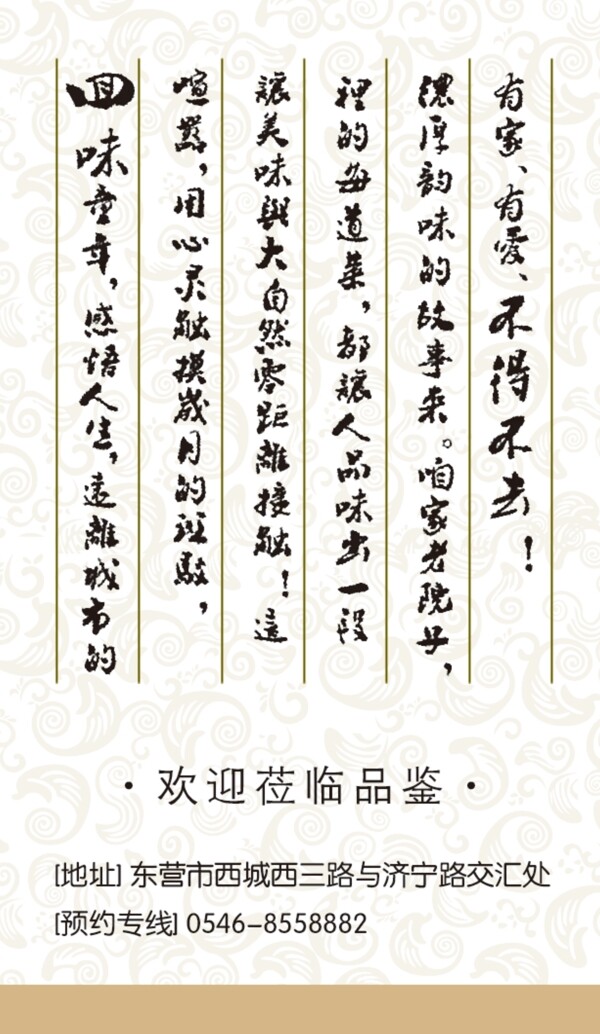 回味童年，感悟人生，远離城市的
喧嚣，用心灵触摸岁月的斑駁，
讓美味與大自然零距離接触！這
裡的每道菜，都讓人品味出一段
浓厚韵味的故事来。咱家老院子，
有家、有愛、不得不去！
·欢迎莅临品鉴·
[地址] 东营市西城西三路与济宁路交汇处
[预约专线] 0546-8558882